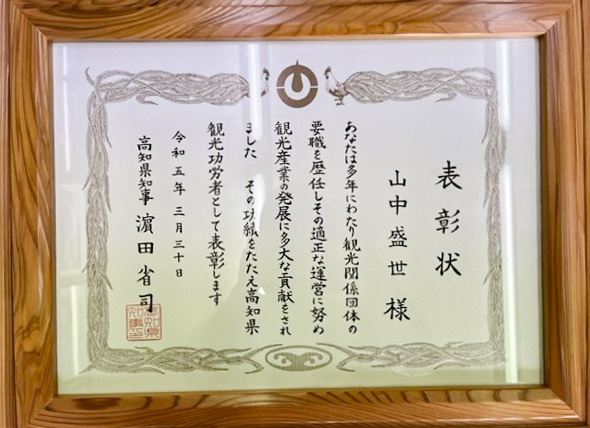 表彰状
山中盛世様
あなたは多年にわたり観光関係団体の
要職を歴任しその適正な運営に努め
観光産業の発展に多大な貢献をされ
ました その功績をたたえ高知県
観光功労者として表彰します
令和五年三月三十日
高知県知事 濵田省司
高知県
知事之印